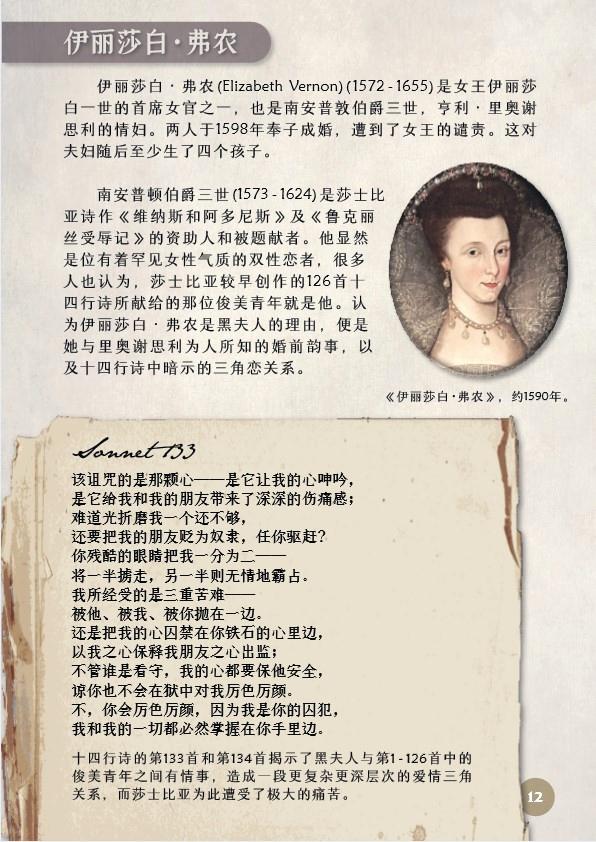 伊丽莎白·弗农
伊丽莎白·弗农(Elizabeth Vernon)(1572-1655)是女王伊丽莎
白一世的首席女官之一，也是南安普敦伯爵三世，亨利·里奥谢
思利的情妇。两人于1598年奉子成婚，遭到了女王的谴责。这对
夫妇随后至少生了四个孩子。
南安普顿伯爵三世(1573-1624)是莎士比
亚诗作《维纳斯和阿多尼斯》及《鲁克丽
丝受辱记》的资助人和被题献者。他显然
是位有着罕见女性气质的双性恋者，很多
人也认为，莎士比亚较早创作的126首十
四行诗所献给的那位俊美青年就是他。认
为伊丽莎白·弗农是黑夫人的理由，便是
她与里奥谢思利为人所知的婚前韵事，以
及十四行诗中暗示的三角恋关系。
《伊丽莎白·弗农》，约1590年。
Sonnet 133
该诅咒的是那颗心——是它让我的心呻吟，
是它给我和我的朋友带来了深深的伤痛感；
难道光折磨我一个还不够，
还要把我的朋友贬为奴隶，任你驱赶？
你残酷的眼睛把我一分为二——
将一半掳走，另一半则无情地霸占。
我所经受的是三重苦难——
被他、被我、被你抛在一边。
还是把我的心囚禁在你铁石的心里边，
以我之心保释我朋友之心出监；
不管谁是看守，我的心都要保他安全，
谅你也不会在狱中对我厉色厉颜。
不，你会厉色厉颜，因为我是你的囚犯，
我和我的一切都必然掌握在你手里边。
十四行诗的第133首和第134首揭示了黑夫人与第1-126首中的
俊美青年之间有情事，造成一段更复杂更深层次的爱情三角
关系，而莎士比亚为此遭受了极大的痛苦。
12